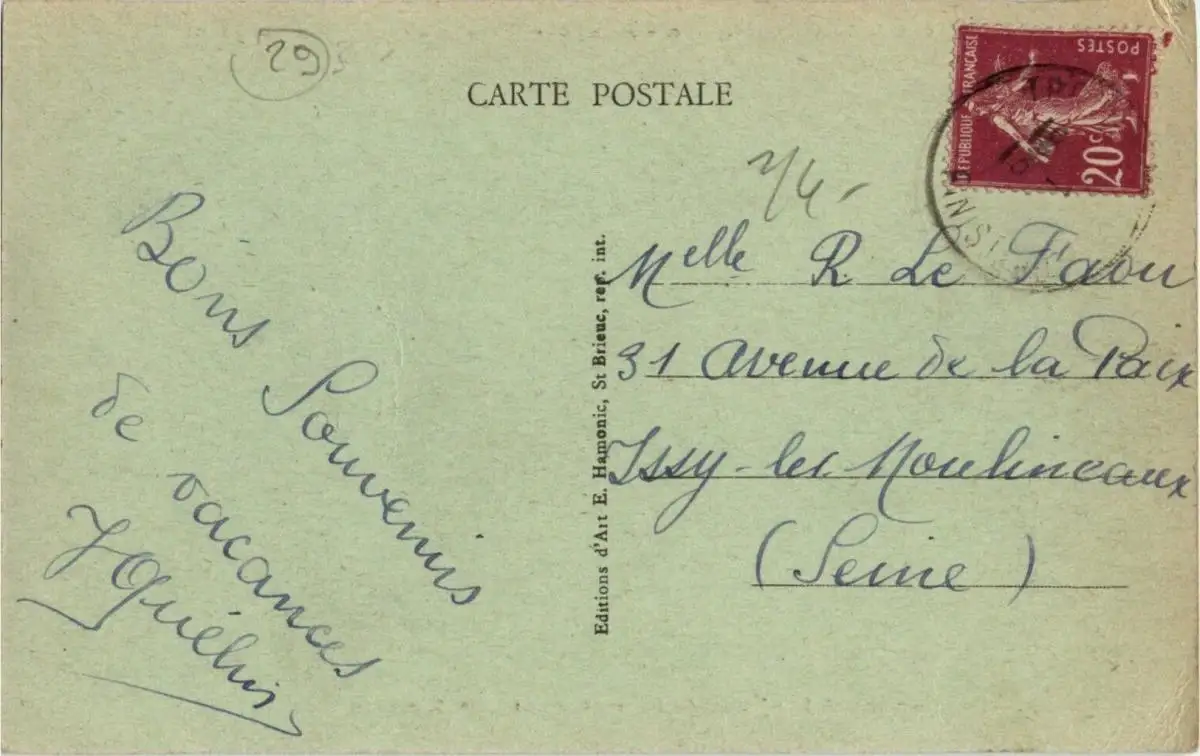 29
CARTE POSTALE
POSTES
REPUBLIQUE FRANÇAISE
20c
FINIST
Bons Souvenirs
de vacances
Melle R Le Faou
31 avenue de la Paix
Issy-les Moulineaux
(Seine)
Editions d'Art E. Hamonic, St Brieuc, rep. int.